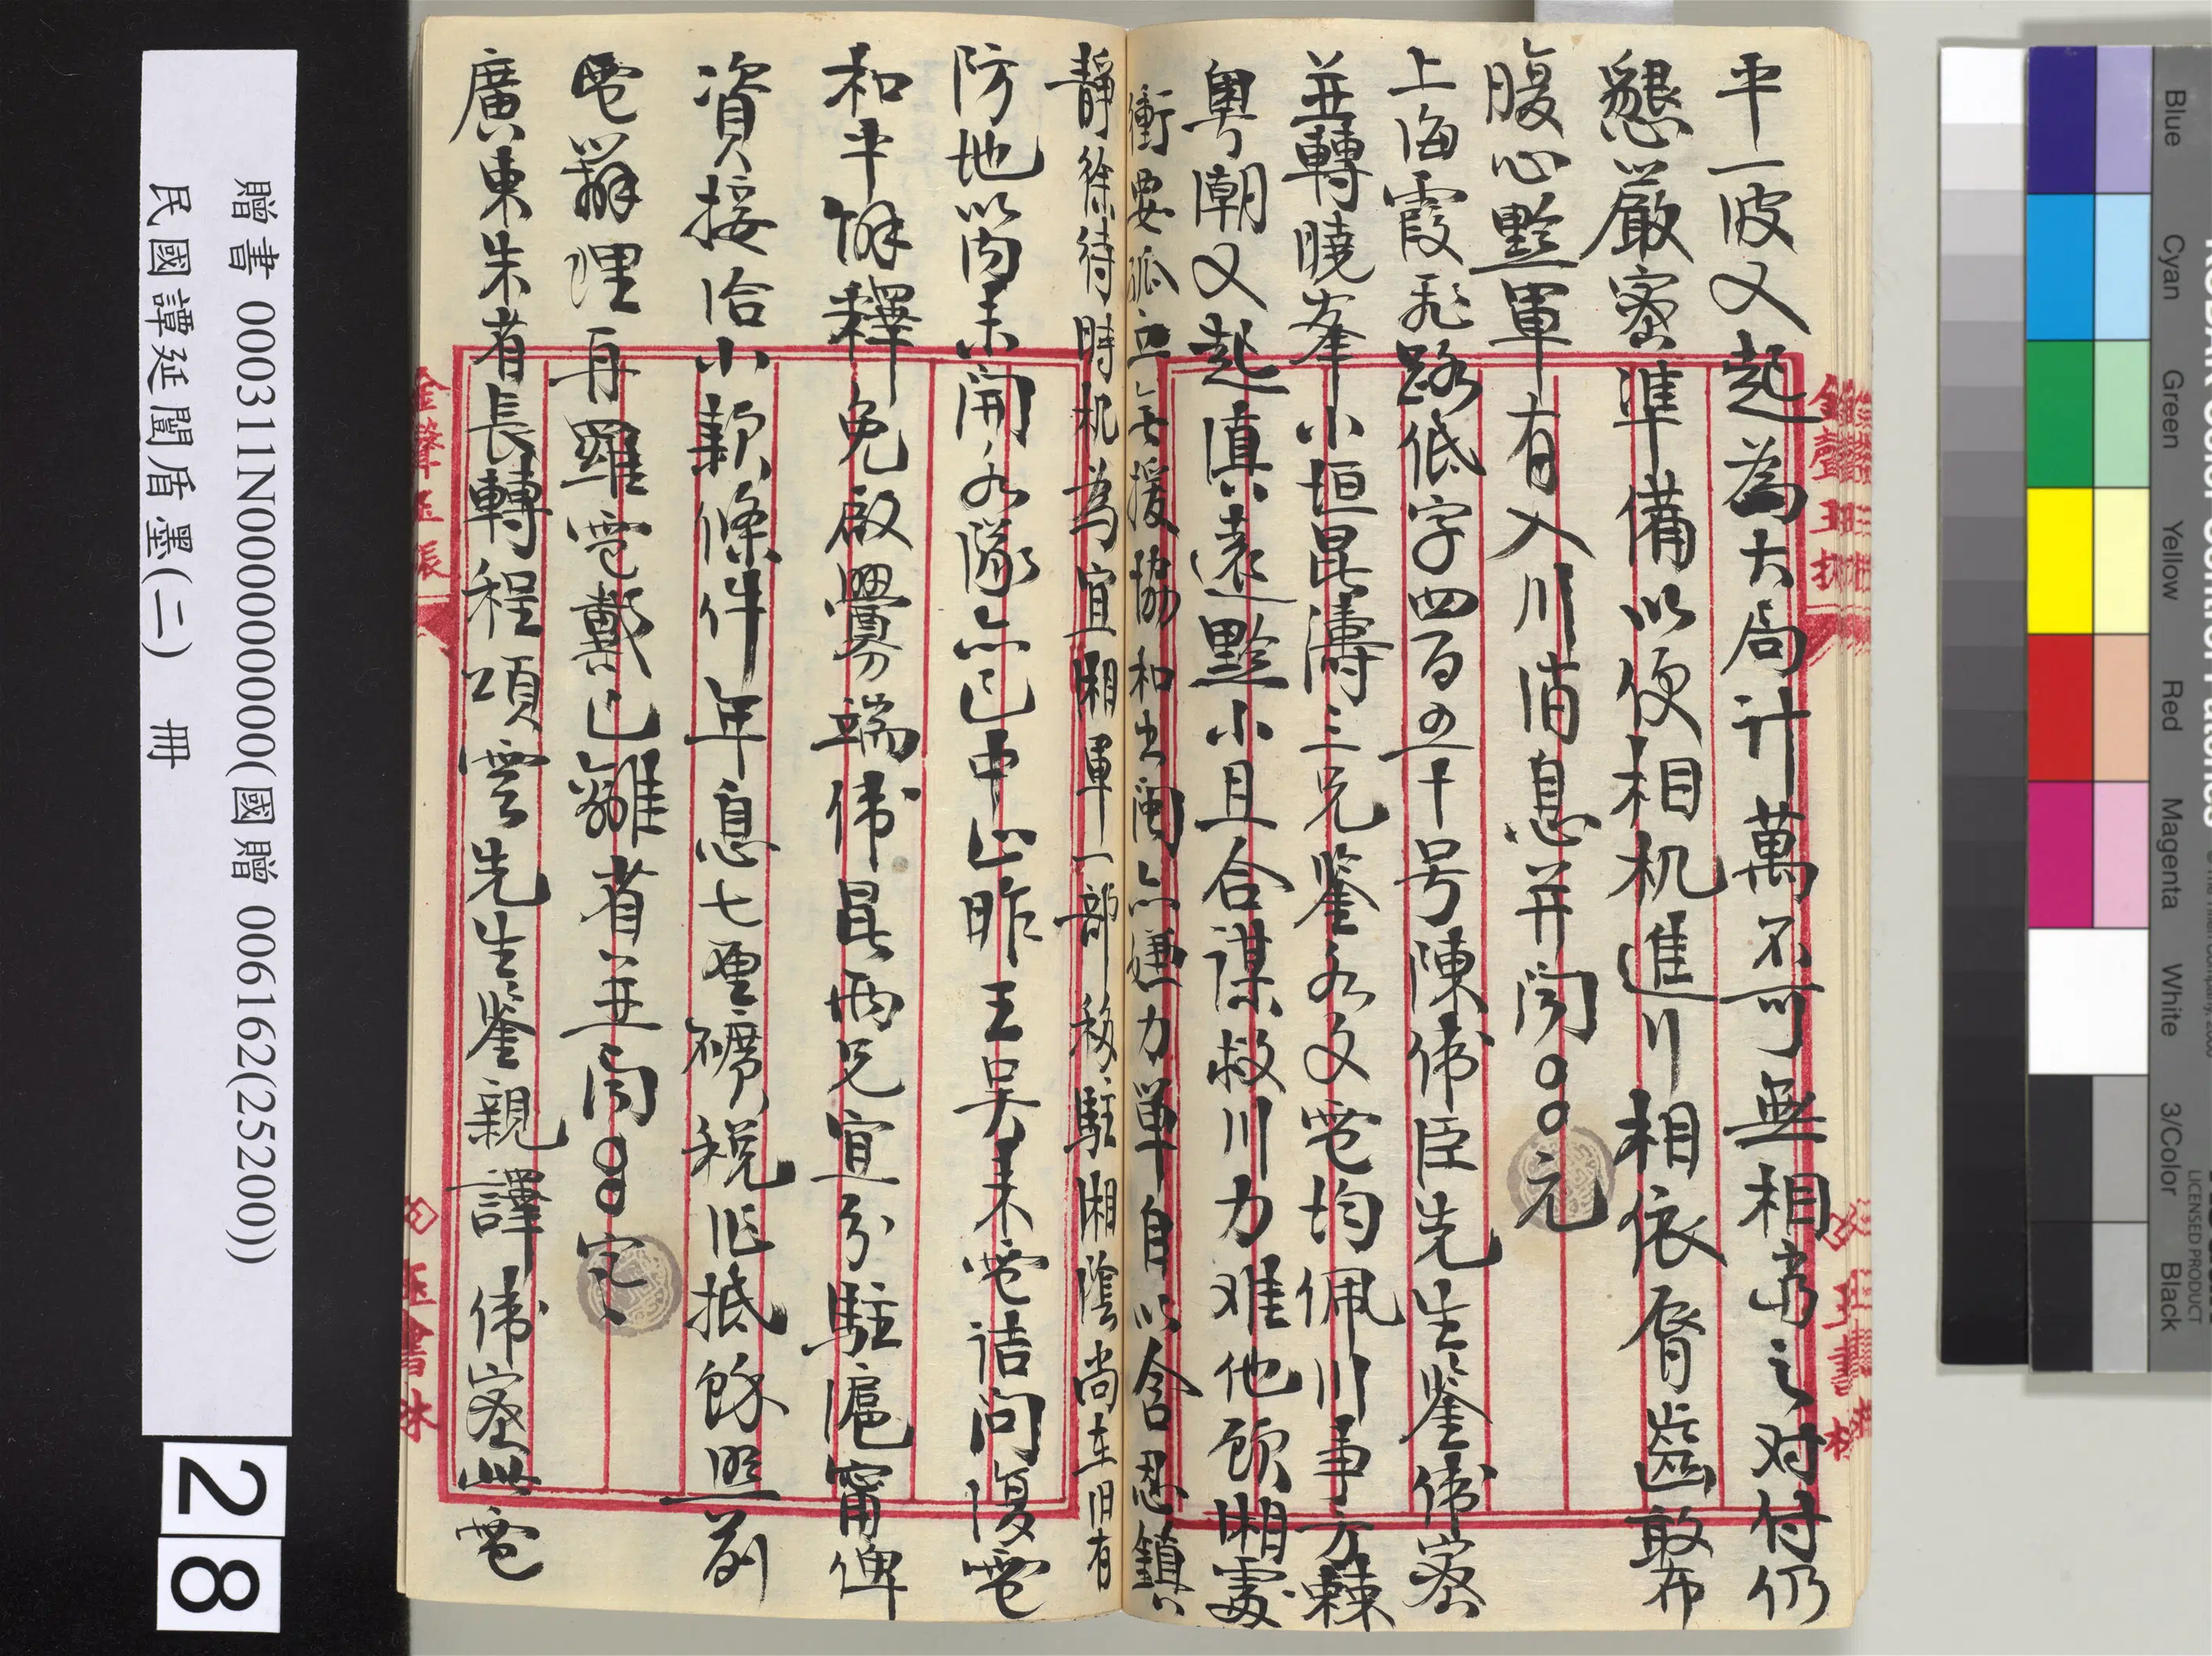 平一波又起為大局計萬不可無相當之对付仍
懇以嚴密準備以便相机進川相依脣齒敢布
腹心黔軍有入川消息并聞○○元
上海霞飛路低字四百五十号陳偉臣先生鉴偉密
並轉曉峯小垣昆濤三兄鉴各文電均佩川事方棘
粤潮又起滇遠黔小且合謀救川力难他顾湘處
衝要孤立無援協和出闽亦嫌力單自以含忍鎮
靜徐待時机為宜湘軍一部移駐湘陰尚在旧有
防地以内未開各隊亦已中止昨王吴来電詰问復電
和平解釋免啟釁端偉昆两兄宜分駐滬甯俾
資接洽小款條件年息七厘礦税作抵餘照前
電辦理再羅電戴已離省並聞○○
廣東朱省長轉程頌雲先生鉴親譯偉密此電
贈書 000311N000000000000(國贈 006162(25200))
民國譚延闓盾墨(二) 冊
28
Blue
Cyan
Green
Yellow
Red
Magenta
White
3/Color
Black
LICENSED PRODUCT